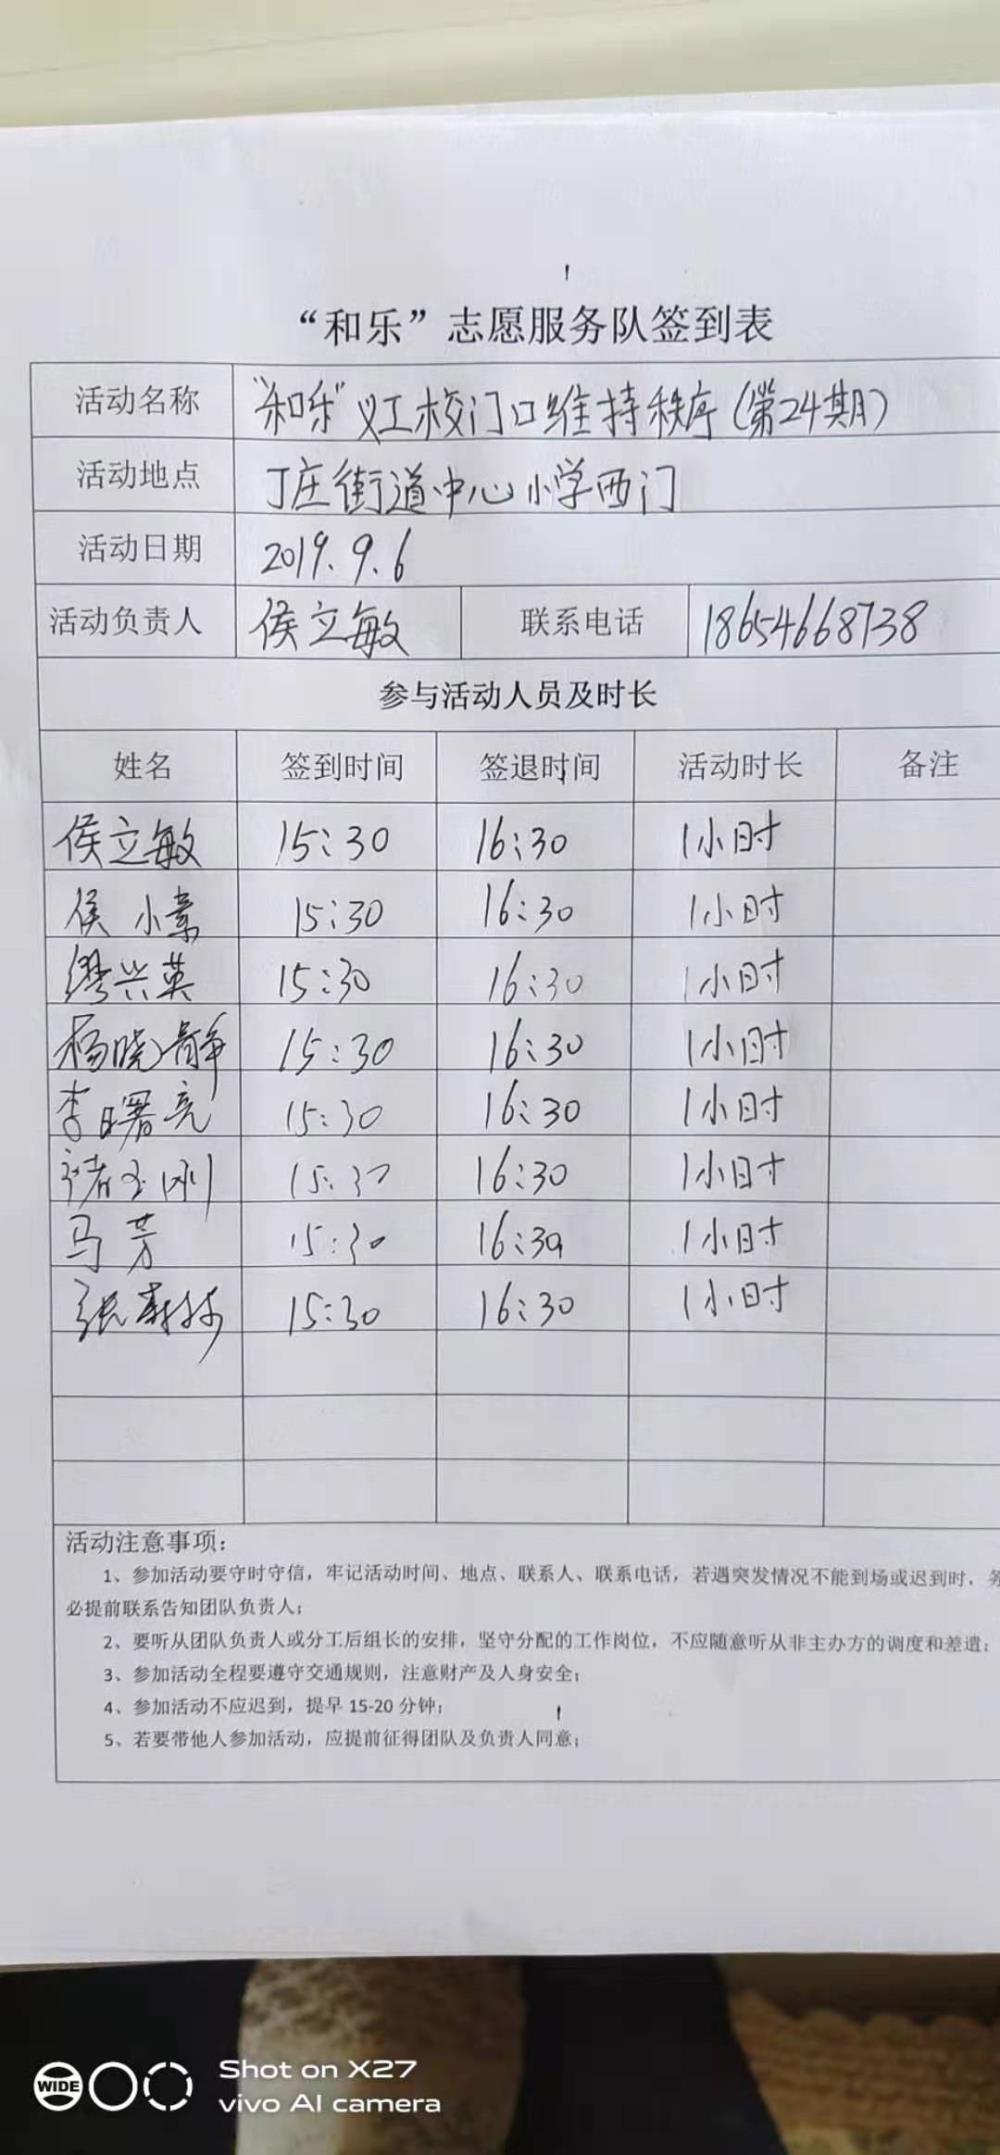 “和乐”志愿服务队签到表
活动名称 “和乐”义工校门口维持秩序(第24期)
活动地点 丁庄街道中心小学西门
活动日期 2019.9.6
活动负责人 侯立敏 联系电话 18654668738
参与活动人员及时长
姓名 签到时间 签退时间 活动时长 备注
侯立敏 15:30 16:30 1小时
侯小素 15:30 16:30 1小时
缪兴英 15:30 16:30 1小时
杨晓静 15:30 16:30 1小时
李曙亮 15:30 16:30 1小时
褚玉刚 15:30 16:30 1小时
马芳 15:30 16:30 1小时
张 15:30 16:30 1小时
活动注意事项:
1、参加活动要守时守信,牢记活动时间、地点、联系人、联系电话,若遇突发情况不能到场或迟到时,务
必提前联系告知团队负责人;
2、要听从团队负责人或分工后组长的安排,坚守分配的工作岗位,不应随意听从非主办方的调度和差遣;
3、参加活动全程要遵守交通规则,注意财产及人身安全;
4、参加活动不应迟到,提早 15-20 分钟;
5、若要带他人参加活动,应提前征得团队及负责人同意;
WIDE
Shot on X27
vivo AI camera